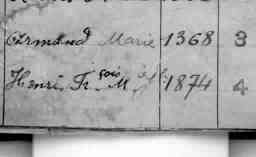 Armand Marie 1368 3
Henri Fr çois M 1874 4